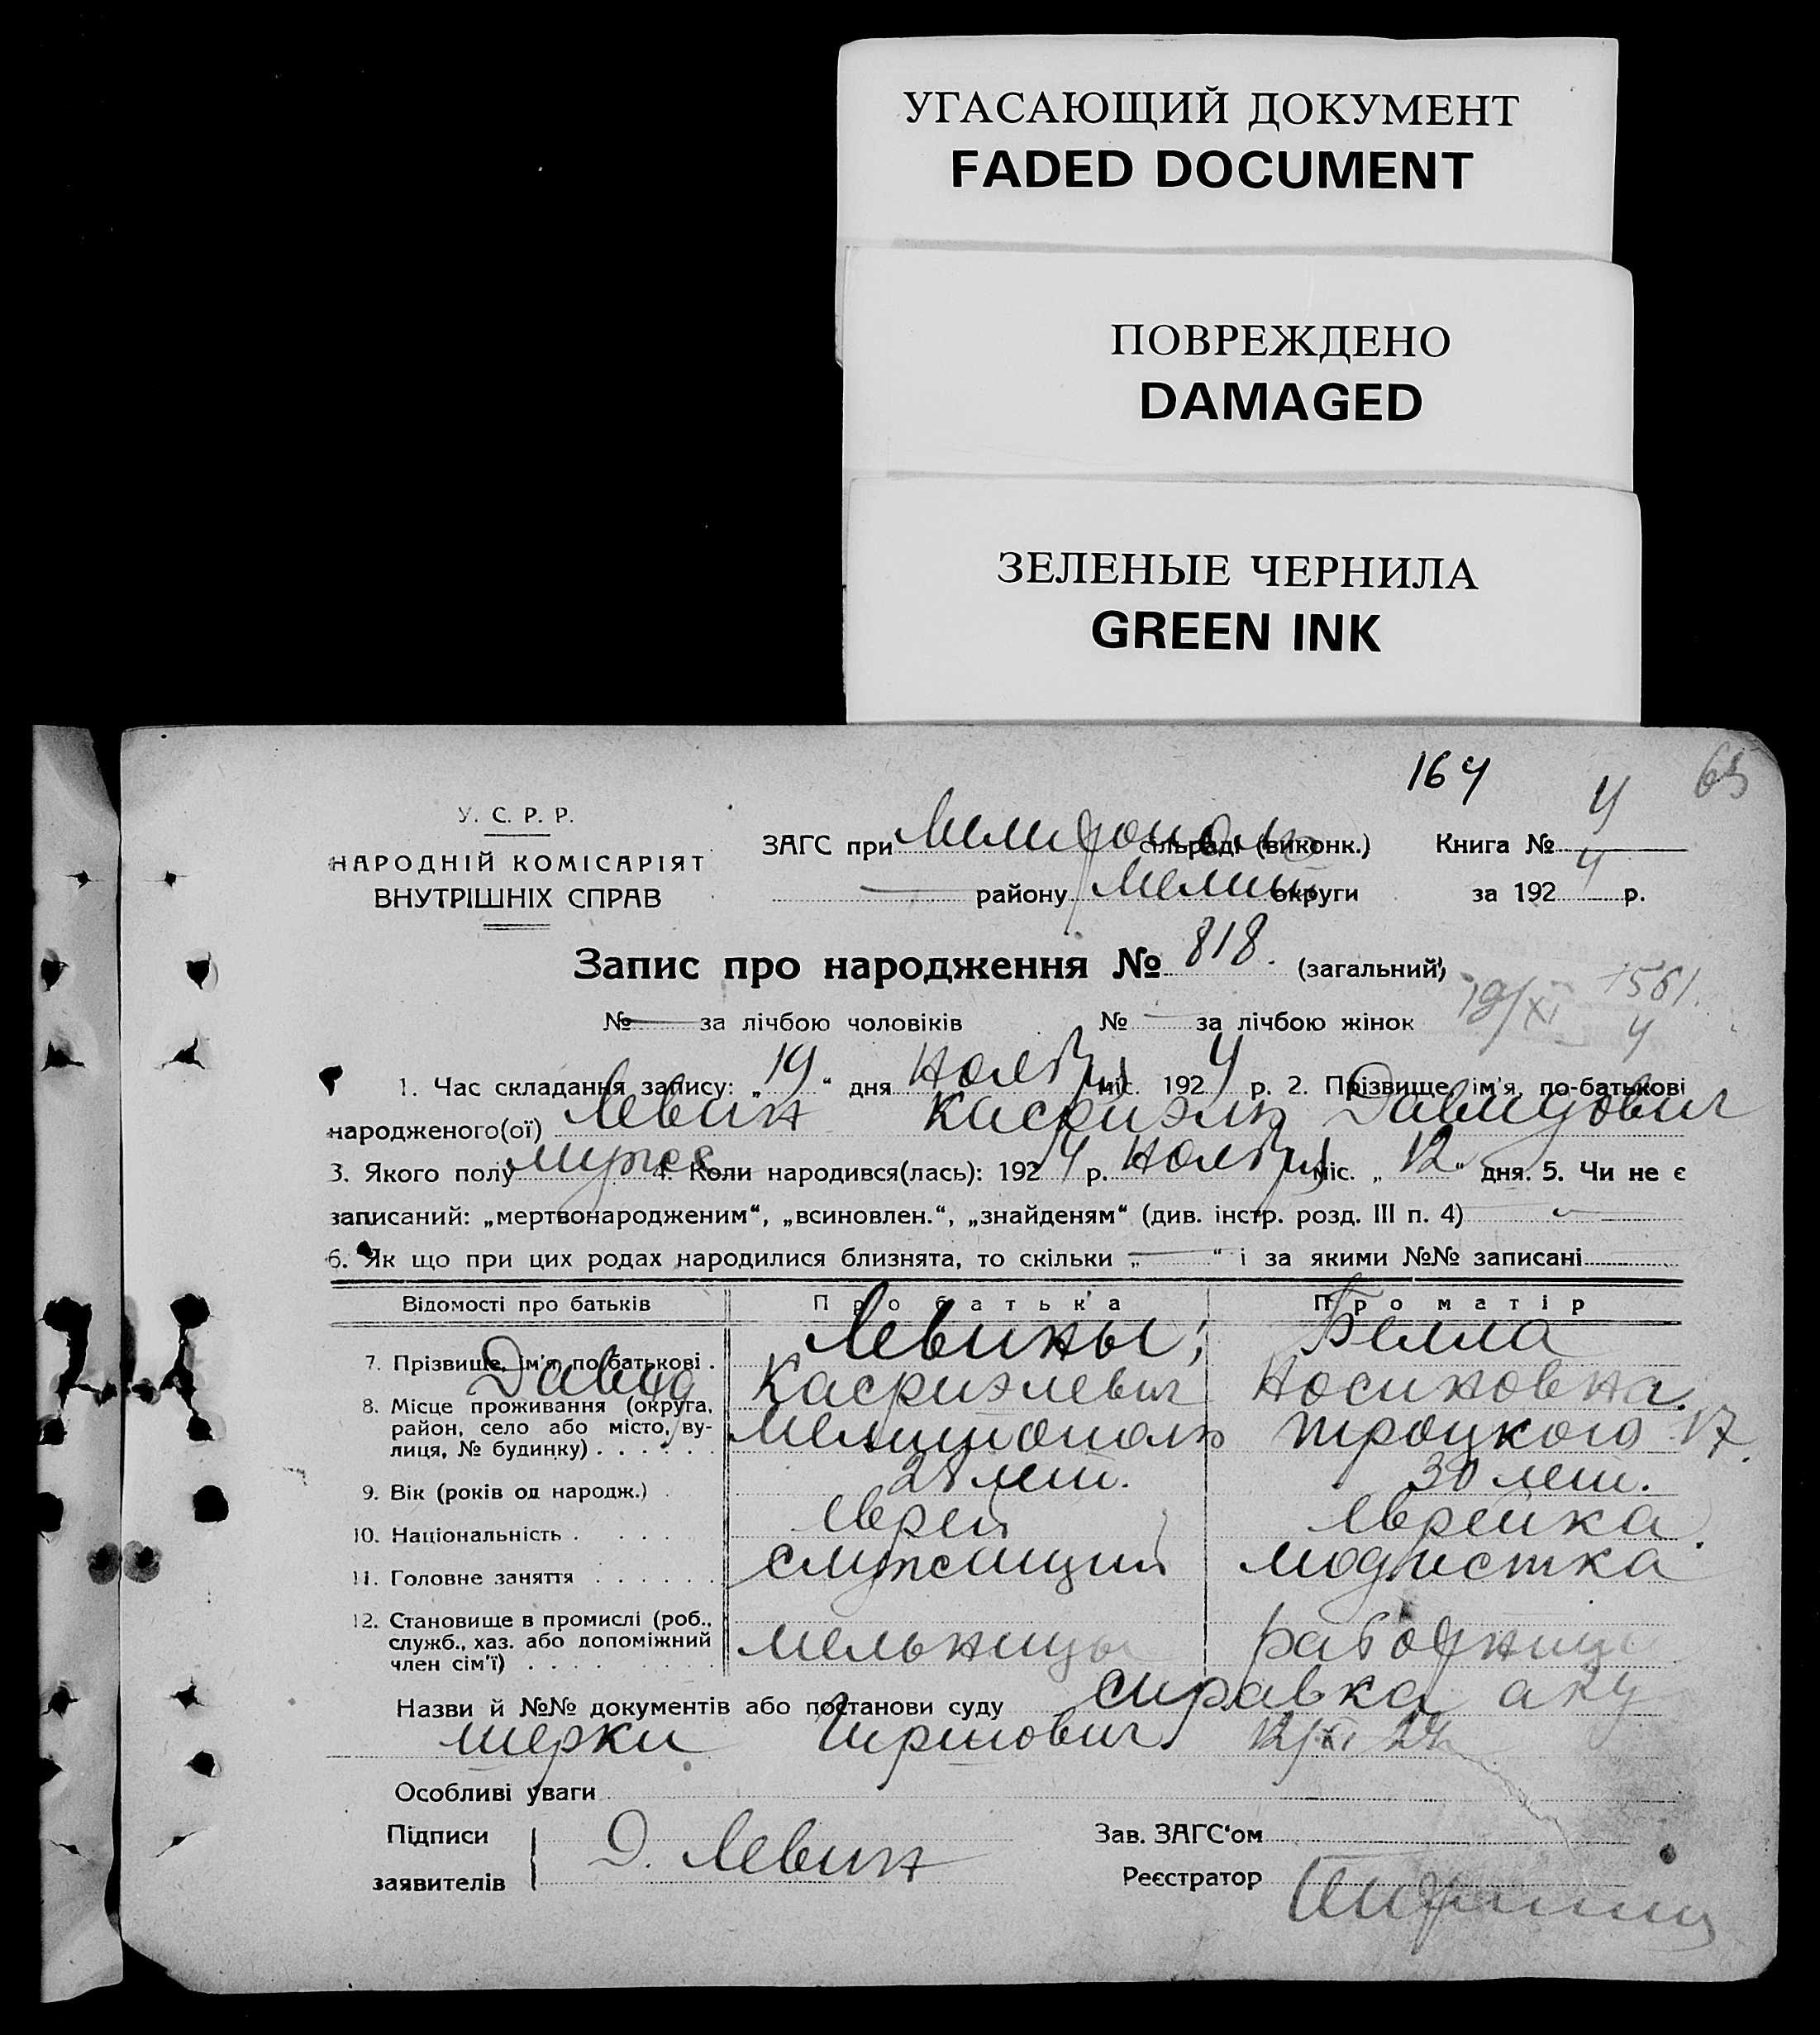 УГАСАЮЩИЙ ДОКУМЕНТ
FADED DOCUMENT
ПОВРЕЖДЕНО
DAMAGED
ЗЕЛЕНЫЕ ЧЕРНИЛА
GREEN INK
164 65
У. С. Р. Р.
НАРОДНІЙ КОМІСАРІЯТ
ВНУТРІШНІХ СПРАВ
ЗАГС при сільраді (виконк.) Книга № 4
району округи за 1924 р.
Запис про народження № 818. (загальний)
№ — за лічбою чоловіків № — за лічбою жінок 19/XI 1561 4
1. Час складання запису: „19“ дня Ноября міс. 1924 р. 2. Прізвище, ім'я, по-батькові
народженого(ої) Левин Касриэль Давидович
3. Якого полу мужск 4. Коли народився(лась): 1924 р. Ноября міс. „12“ дня. 5. Чи не є
записаний: „мертвонародженим“, „всиновлен.“, „знайденям“ (див. інстр. розд. III п. 4) —
6. Як що при цих родах народилися близнята, то скільки „—“ і за якими №№ записані
Відомості про батьків Про батька Про матір
7. Прізвище, ім'я, по-батькові . Левины; Белла
Давид Касриэлевич Носиновна
8. Місце проживання (округа, район, село або місто, вулиця, № будинку) . . . . . . Мелитополь Троцкого 17.
9. Вік (років од народж.) . 28 лет. 30 лет.
10. Національність . . . . еврей еврейка
11. Головне заняття . . . . . . служащий модистка
12. Становище в промислі (роб., служб., хаз. або допоміжний член сім'ї) . . . . . . . . . мельницы работница
Назви й №№ документів або постанови суду справка аку
шерки Гиршович 12/XI 24
Особливі уваги
Підписи
заявителів Д. Левин
Зав. ЗАГС'ом
Реєстратор